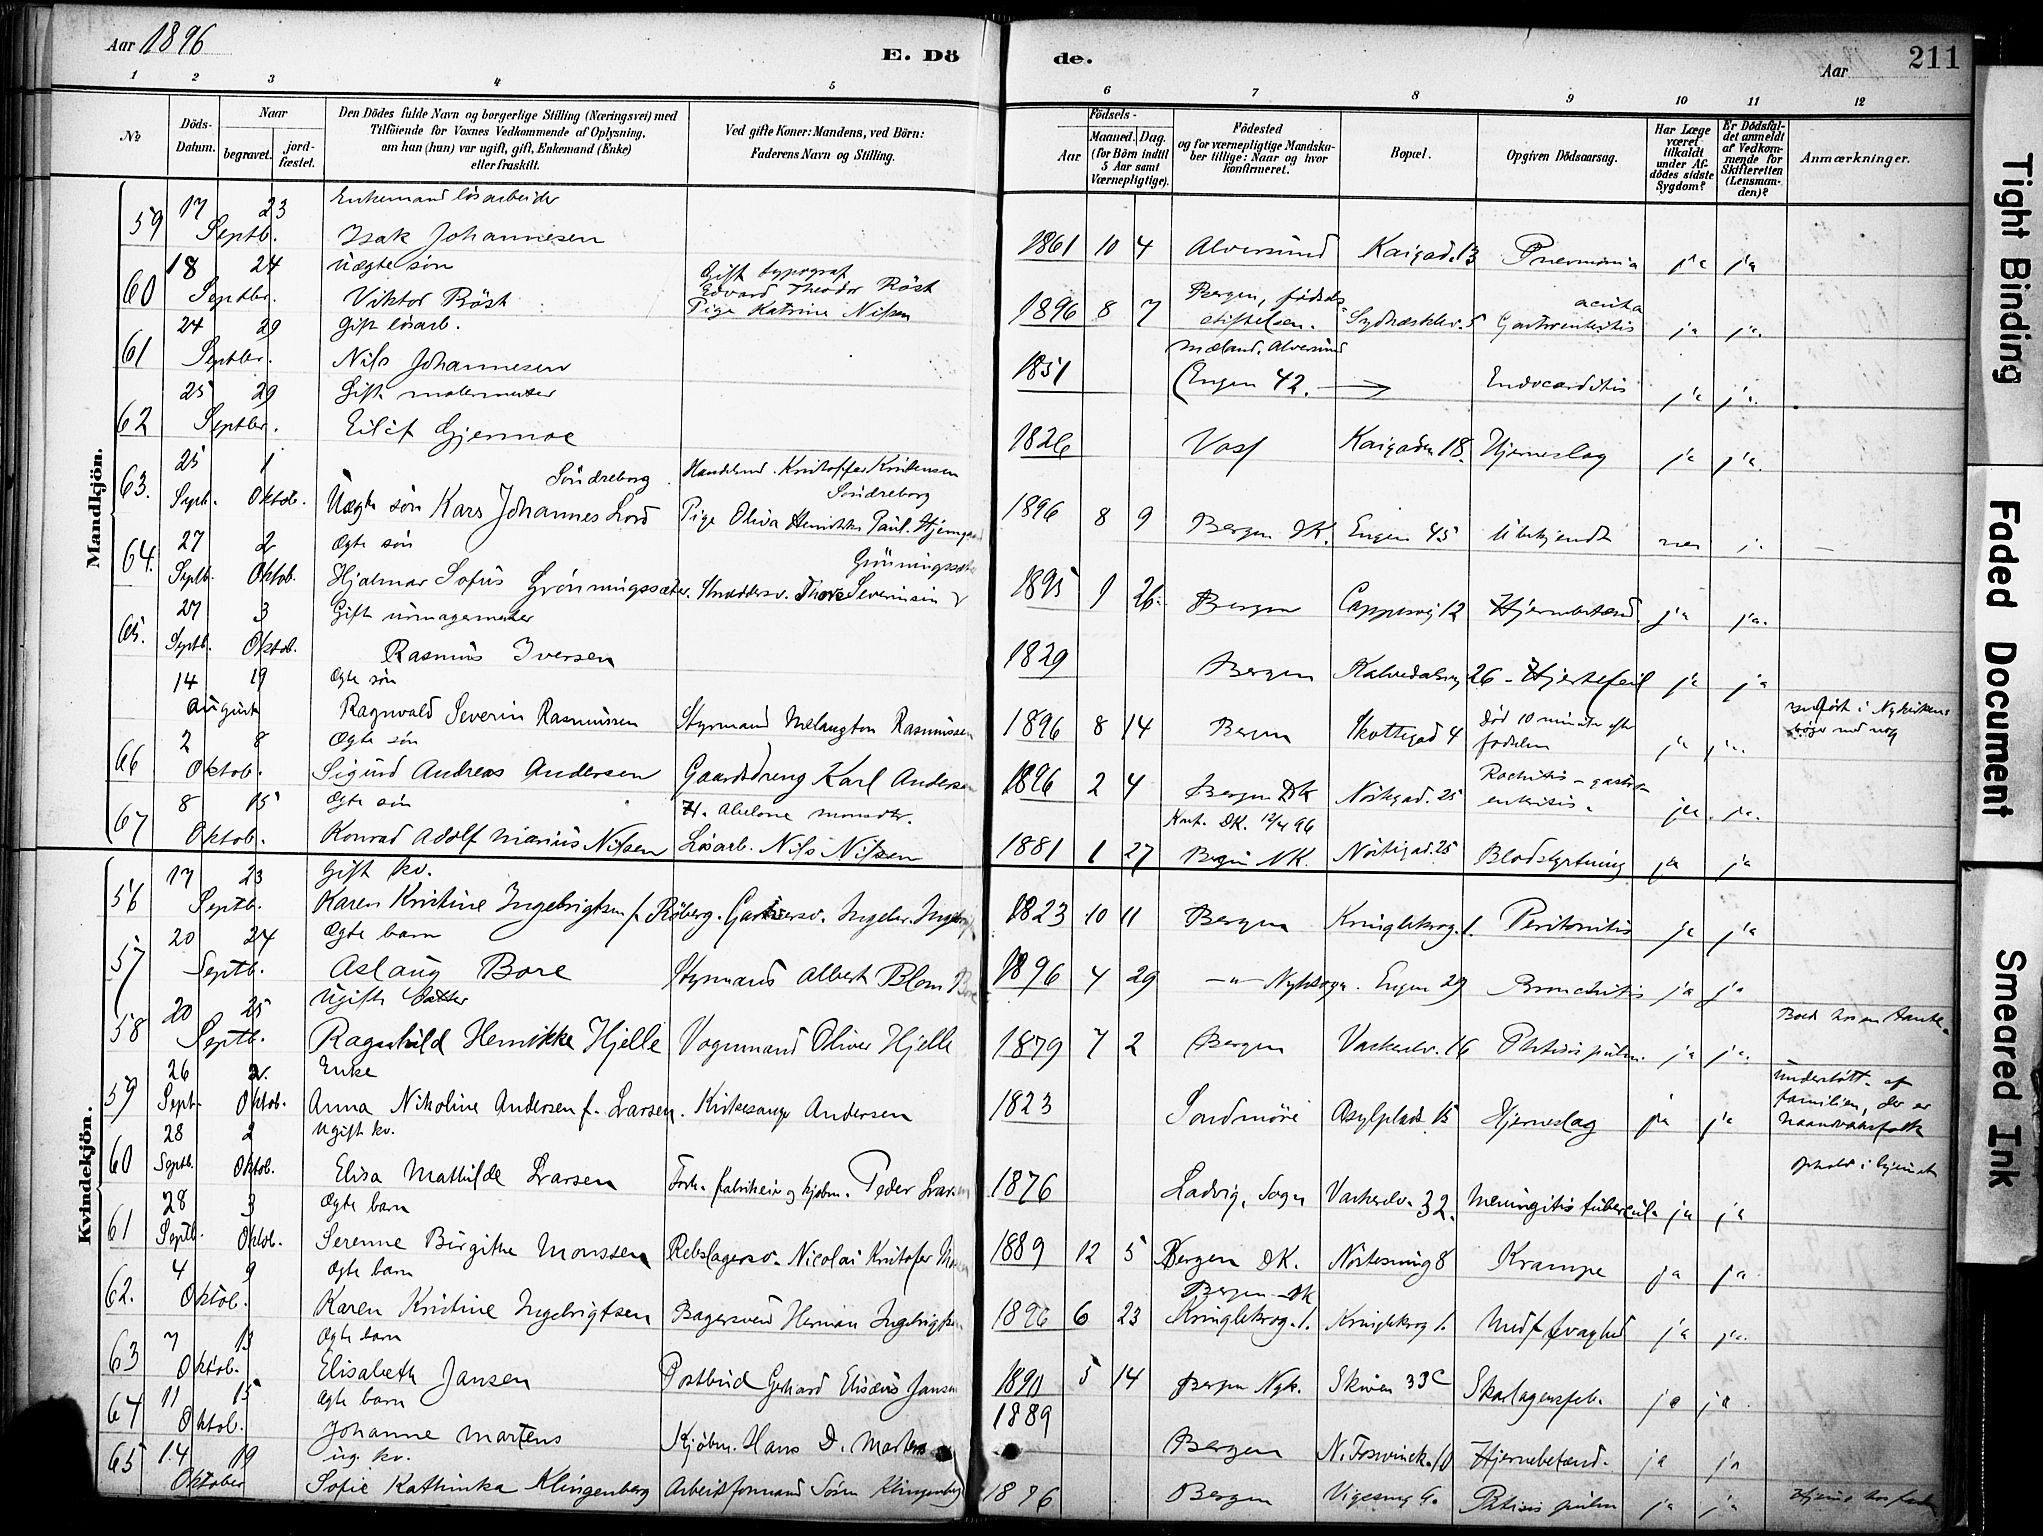 Aar 1896
E. Döde.
Aar
211
Tight Binding
Faded Document
Smeared Ink
1 2 3 4 5 6 7 8 9 10 11 12
No
Döds-Datum.
Naar
begravet.
jord-fæstet.
Den Dödes fulde Navn og borgerlige Stilling (Næringsvei) med
Tilföiende for Voxnes Vedkommende af Oplysning,
om han (hun) var ugift, gift, Enkemand (Enke)
eller fraskilt.
Ved gifte Koner: Mandens, ved Börn:
Faderens Navn og Stilling.
Födsels-
Aar
Maaned. Dag.
(for Börn indtil
5 Aar samt
Værnepligtige).
Födested
og for værnepligtige Mandska-
ber tillige: Naar og hvor
konfirmeret.
Bopæl.
Opgiven Dödsaarsag.
Har Læge
været
tilkaldt
under Af-
dödes sidste
Sygdom?
Er Dödsfal-
det anmeldt
af Vedkom-
mende for
Skifteretten
(Lensman-
den)?
Anmærkninger.
Mandkjön.
59 17 Septb. 23 Enkemand lösarbeider
Isak Johannesen 1861 10 4 Alversund Kaigad. 13 Pneumonia ja ja
60 18 Septbr. 24 Uægte sön
Viktor Röst
Gift typograf
Edvard Theodor Röst
Pige Katrine Nilsen
1896 8 7 Bergen, födsels-
stiftelsen. 5 acuta
Gastroenteritis ja ja.
61 24 Septbr. 29 Gift lösarb.
Nils Johannesen 1851 Mæland, Alversund
Engen 42. Endocarditis ja ja.
62 25 Septbr. 29 Gift malermester
Eilif Gjermoe 1826 Voss Kaigaden 18. Hjerneslag ja ja.
63. 25 Sept. 1 Oktob. Söndreborg
Uægte sön Kars Johannes Lord
Kristoffer Kristensen
Söndreborg
Pige Oliva Henrikke Paul.
1896 8 9 Bergen DK. Engen 45 Ubekjendt nei j. —
64. 27 Septb. 2 Oktob. Ægte sön
Hjalmar Sofus Grönningssæter. Severinsen
1895 9 26. Bergen 12 Hjernebetænd. ja ja.
65. 27 Septb. 3 Oktob. Gift urmagermester
Rasmus Iversen 1829 Bergen Kalvedalsvej 26 – Hjertefeil ja ja
14 August 19 Ægte sön
Ragnvald Severin Rasmussen Styrmand Melangton Rasmussen
1896 8 14 Bergen Skottegad 4 död 10 minuter efter
födselen ja ja.
66 2 Oktob. 8 Ægte sön
Sigurd Andreas Andersen Gaardsdreng Karl Andersen
1896 2 4 Bergen DK Nöstegad. 25 Rachitis – gastro-
enteritis. ja. ja.
67 8 Oktob. 15 Ægte sön
Konrad Adolf Marius Nilsen Lösarb. Nils Nilsen
1881 1 27 Konf. DK. 96
Bergen NK. Nöstegad. 25 Blodstyrtning ja ja
Kvindekjön.
56 17 Septb. 23 Gift kv.
Karen Kristine Ingebrigtsen f. Röberg.
1823 10 11 Bergen Kringlekrog. 1. Peritonitis ja ja
57 20 Septb. 24 Ægte barn
Aslaug Bore Styrmand Albert Blom Bore
1896 4 29 –"– Nyksogn. Engen 29 Bronchitis ja ja
58 20 Septb. 25 Ugift datter
Ragnhild Henrikke Hjelle Vognmand Oliver Hjelle
1879 7 2 Bergen 16 Phtisis pulm. ja ja. Boed hos en tante.
59 26 Sept. 2. Oktob. Enke
Anna Nikoline Andersen f. Larsen. Kirkesanger Andersen
1823 Söndmöre Asylplads 15 Hjerneslag ja ja
understött. af
familien, der er
haandværksfolk
60 28 Septb. 2 Oktob. Ugift kv.
Elisa Mathilde Larsen Peder Larsen
1876 Ladvig, Sogn 32. Meningitis tubercul. ja ja Ophold i hjemmet
61 28 Septb. 3 Oktob. Ægte barn
Serenne Birgithe Monssen Rebslagersv. Nicolai Kristofer Monssen
1889 12 5 Bergen DK. Nöstesmug 8 Krampe ja ja
62. 4 Oktob. 9 Ægte barn
Karen Kristine Ingebrigtsen Bagersvend Herman Ingebrigtsen
1896 6 23 Bergen – DK
Kringlekrog. 1. Kringlekrog 1. Medf. svaghed ja ja.
63 7 Oktob. 13 Ægte barn
Elisabeth Jansen Postbud Gerhard Elisæus Jansen
1890 5 14 Bergen Nyk. Skiven 33C Skarlagensfeb. ja ja
64 11 Oktob. 15 Ægte barn
Johanne Martens Kjöbm. Hans D. Martens
1889 Bergen 10 Hjernebetænd. ja ja
65 14 Oktober 19 ug. kv.
Sofie Kathinka Klingenberg Arbeidsformand Sören Klingenberg
1876 Bergen Phtisis pulm ja ja